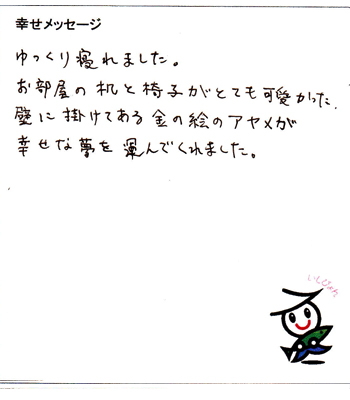 幸せメッセージ
ゆっくり寝れました。
お部屋の机と椅子がとても可愛かった.
壁に掛けてある金の絵のアヤメが
幸せな夢を運んでくれました。